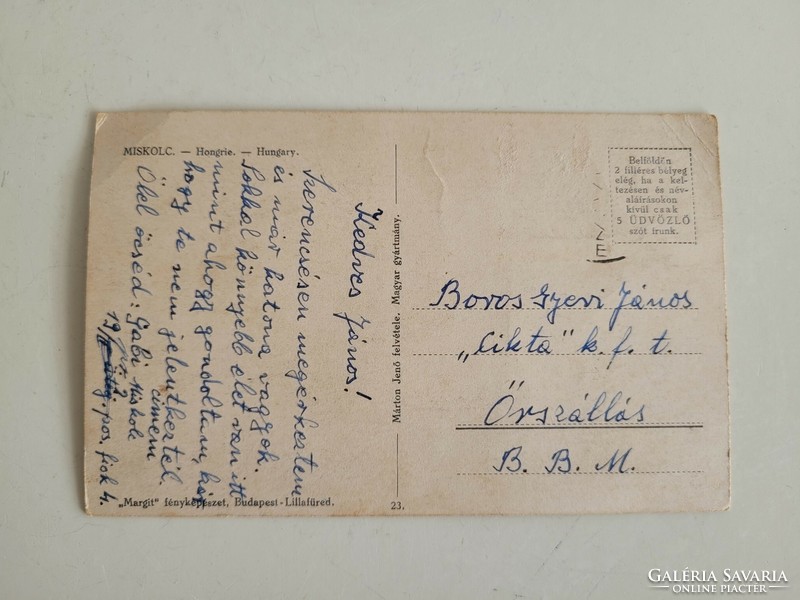 MISKOLC. — Hongrie. — Hungary.
Kedves János!
Szerencsésen megérkeztem
és már katona vagyok.
Sokkal könnyebb élet van itt
mint ahogy gondoltam, kár
hogy te nem jelentkeztél.
Ölel öcséd: Gabi
címem
Miskolc
19
pos. fiók 4.
„Margit” fényképészet, Budapest-Lillafüred.
23.
Márton Jenő felvétele. Magyar gyártmány.
Belföldön
2 filléres bélyeg
elég, ha a kel-
tezésen és név-
aláírásokon
kívül csak
5 ÜDVÖZLŐ
szót írunk.
ZE
Boros Gyevi János
„Cikta” k.f.t.
Őrszállás
B. B. M.
GALÉRIA SAVARIA
ONLINE PIACTÉR